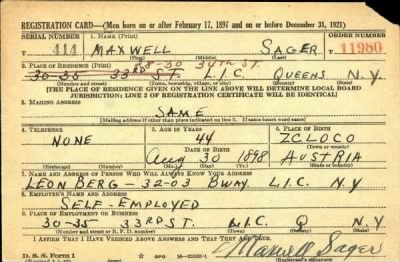 REGISTRATION CARD—(Men born on or after February 17, 1897 and on or before December 31, 1921)
SERIAL NUMBER 1. NAME (Print) ORDER NUMBER
414 MAXWELL SAGER 11980
(First) (Middle) (Last)
28-30 34TH ST.
2. PLACE OF RESIDENCE (Print)
30-35 33RD ST. L.I.C. QUEENS N.Y.
(Number and street) (Town, township, village, or city) (County) (State)
[THE PLACE OF RESIDENCE GIVEN ON THE LINE ABOVE WILL DETERMINE LOCAL BOARD
JURISDICTION; LINE 2 OF REGISTRATION CERTIFICATE WILL BE IDENTICAL]
3. MAILING ADDRESS
SAME
[Mailing address if other than place indicated on line 2. If same insert word same]
4. TELEPHONE 5. AGE IN YEARS 6. PLACE OF BIRTH
NONE 44 ZCLOCO
DATE OF BIRTH (Town or county)
Aug 30 1898 AUSTRIA
(Exchange) (Number) (Mo.) (Day) (Yr.) (State or country)
7. NAME AND ADDRESS OF PERSON WHO WILL ALWAYS KNOW YOUR ADDRESS
LEON BERG - 32-03 BWAY L.I.C. N.Y
8. EMPLOYER'S NAME AND ADDRESS
SELF-EMPLOYED
9. PLACE OF EMPLOYMENT OR BUSINESS
30-35 33RD ST. L.I.C. Q N.Y
(Number and street or R. F. D. number) (Town) (County) (State)
I AFFIRM THAT I HAVE VERIFIED ABOVE ANSWERS AND THAT THEY ARE TRUE.
D. S. S. Form 1 GPO Maxwell Sager
(Registrant's signature)